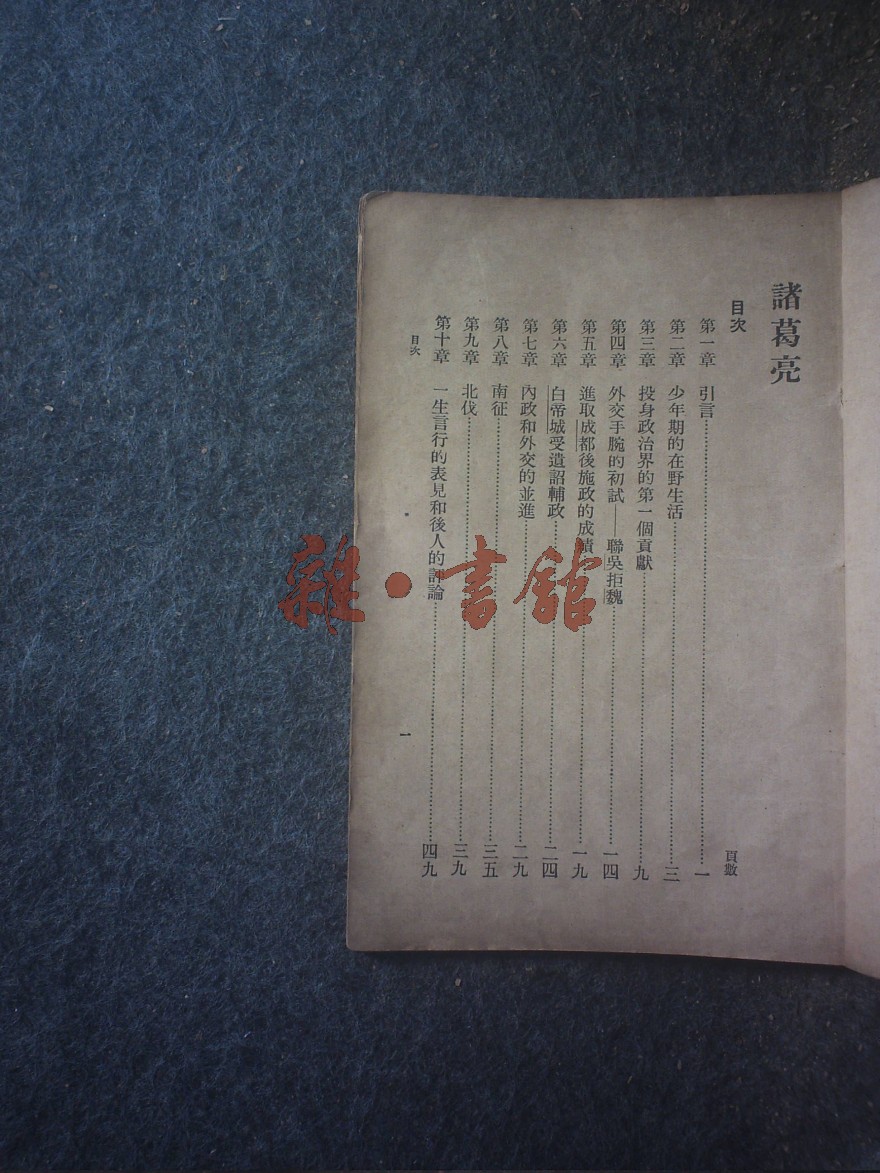 諸葛亮
目次
頁數
第一章 引言……一
第二章 少年期的在野生活……三
第三章 投身政治界的第一個貢獻……九
第四章 外交手腕的初試——聯吳拒魏……一四
第五章 進取成都後施政的成績……一九
第六章 白帝城受遺詔輔政……二四
第七章 內政和外交的並進……二九
第八章 南征……三五
第九章 北伐……三九
第十章 一生言行的表見和後人的評論……四九
目次
一
雜·書館